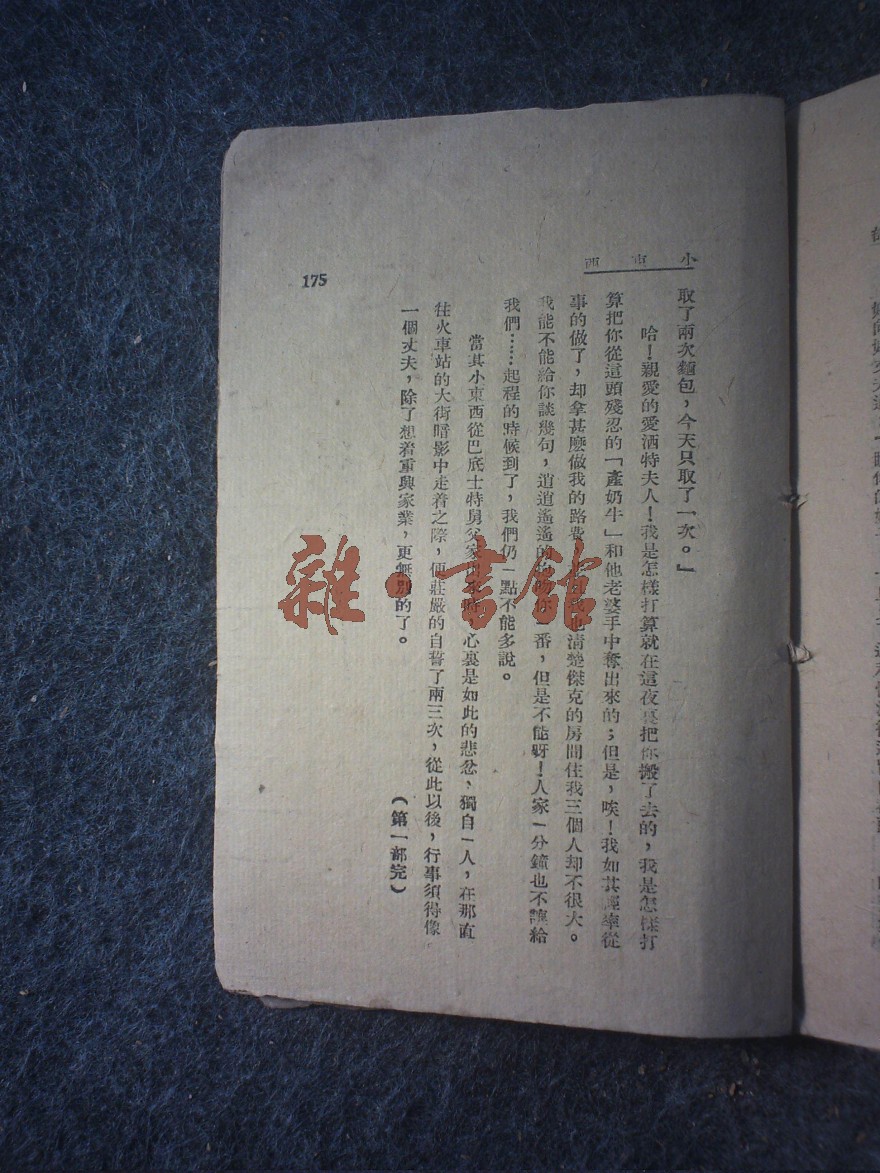 小東西
取了兩次麵包，今天只取了一次。」
哈！親愛的愛洒特夫人！我是怎樣打算就在這夜裏把你搬了去的，我是怎樣打
算把你從這頭殘忍的「產奶牛」和他老婆手中奪出來的；但是，唉！我如其輕率從
事的做了，却拿甚麽做我的路費 也清楚傑克的房間住我三個人却不很大。
我能不能給你談幾句，逍逍遙遙的 你一番，但是不能呀！人家一分鐘也不讓給
我們……起程的時候到了，我們仍一點不能多說。
當其小東西從巴底士特舅父家 心裏是如此的悲忿，獨自一人，在那直
往火車站的大街暗影中走着之際，便莊嚴的自誓了兩三次，從此以後，行事須得像
一個丈夫，除了想着重興家業，更無別的了。
（第一部完）
175
雜·書館